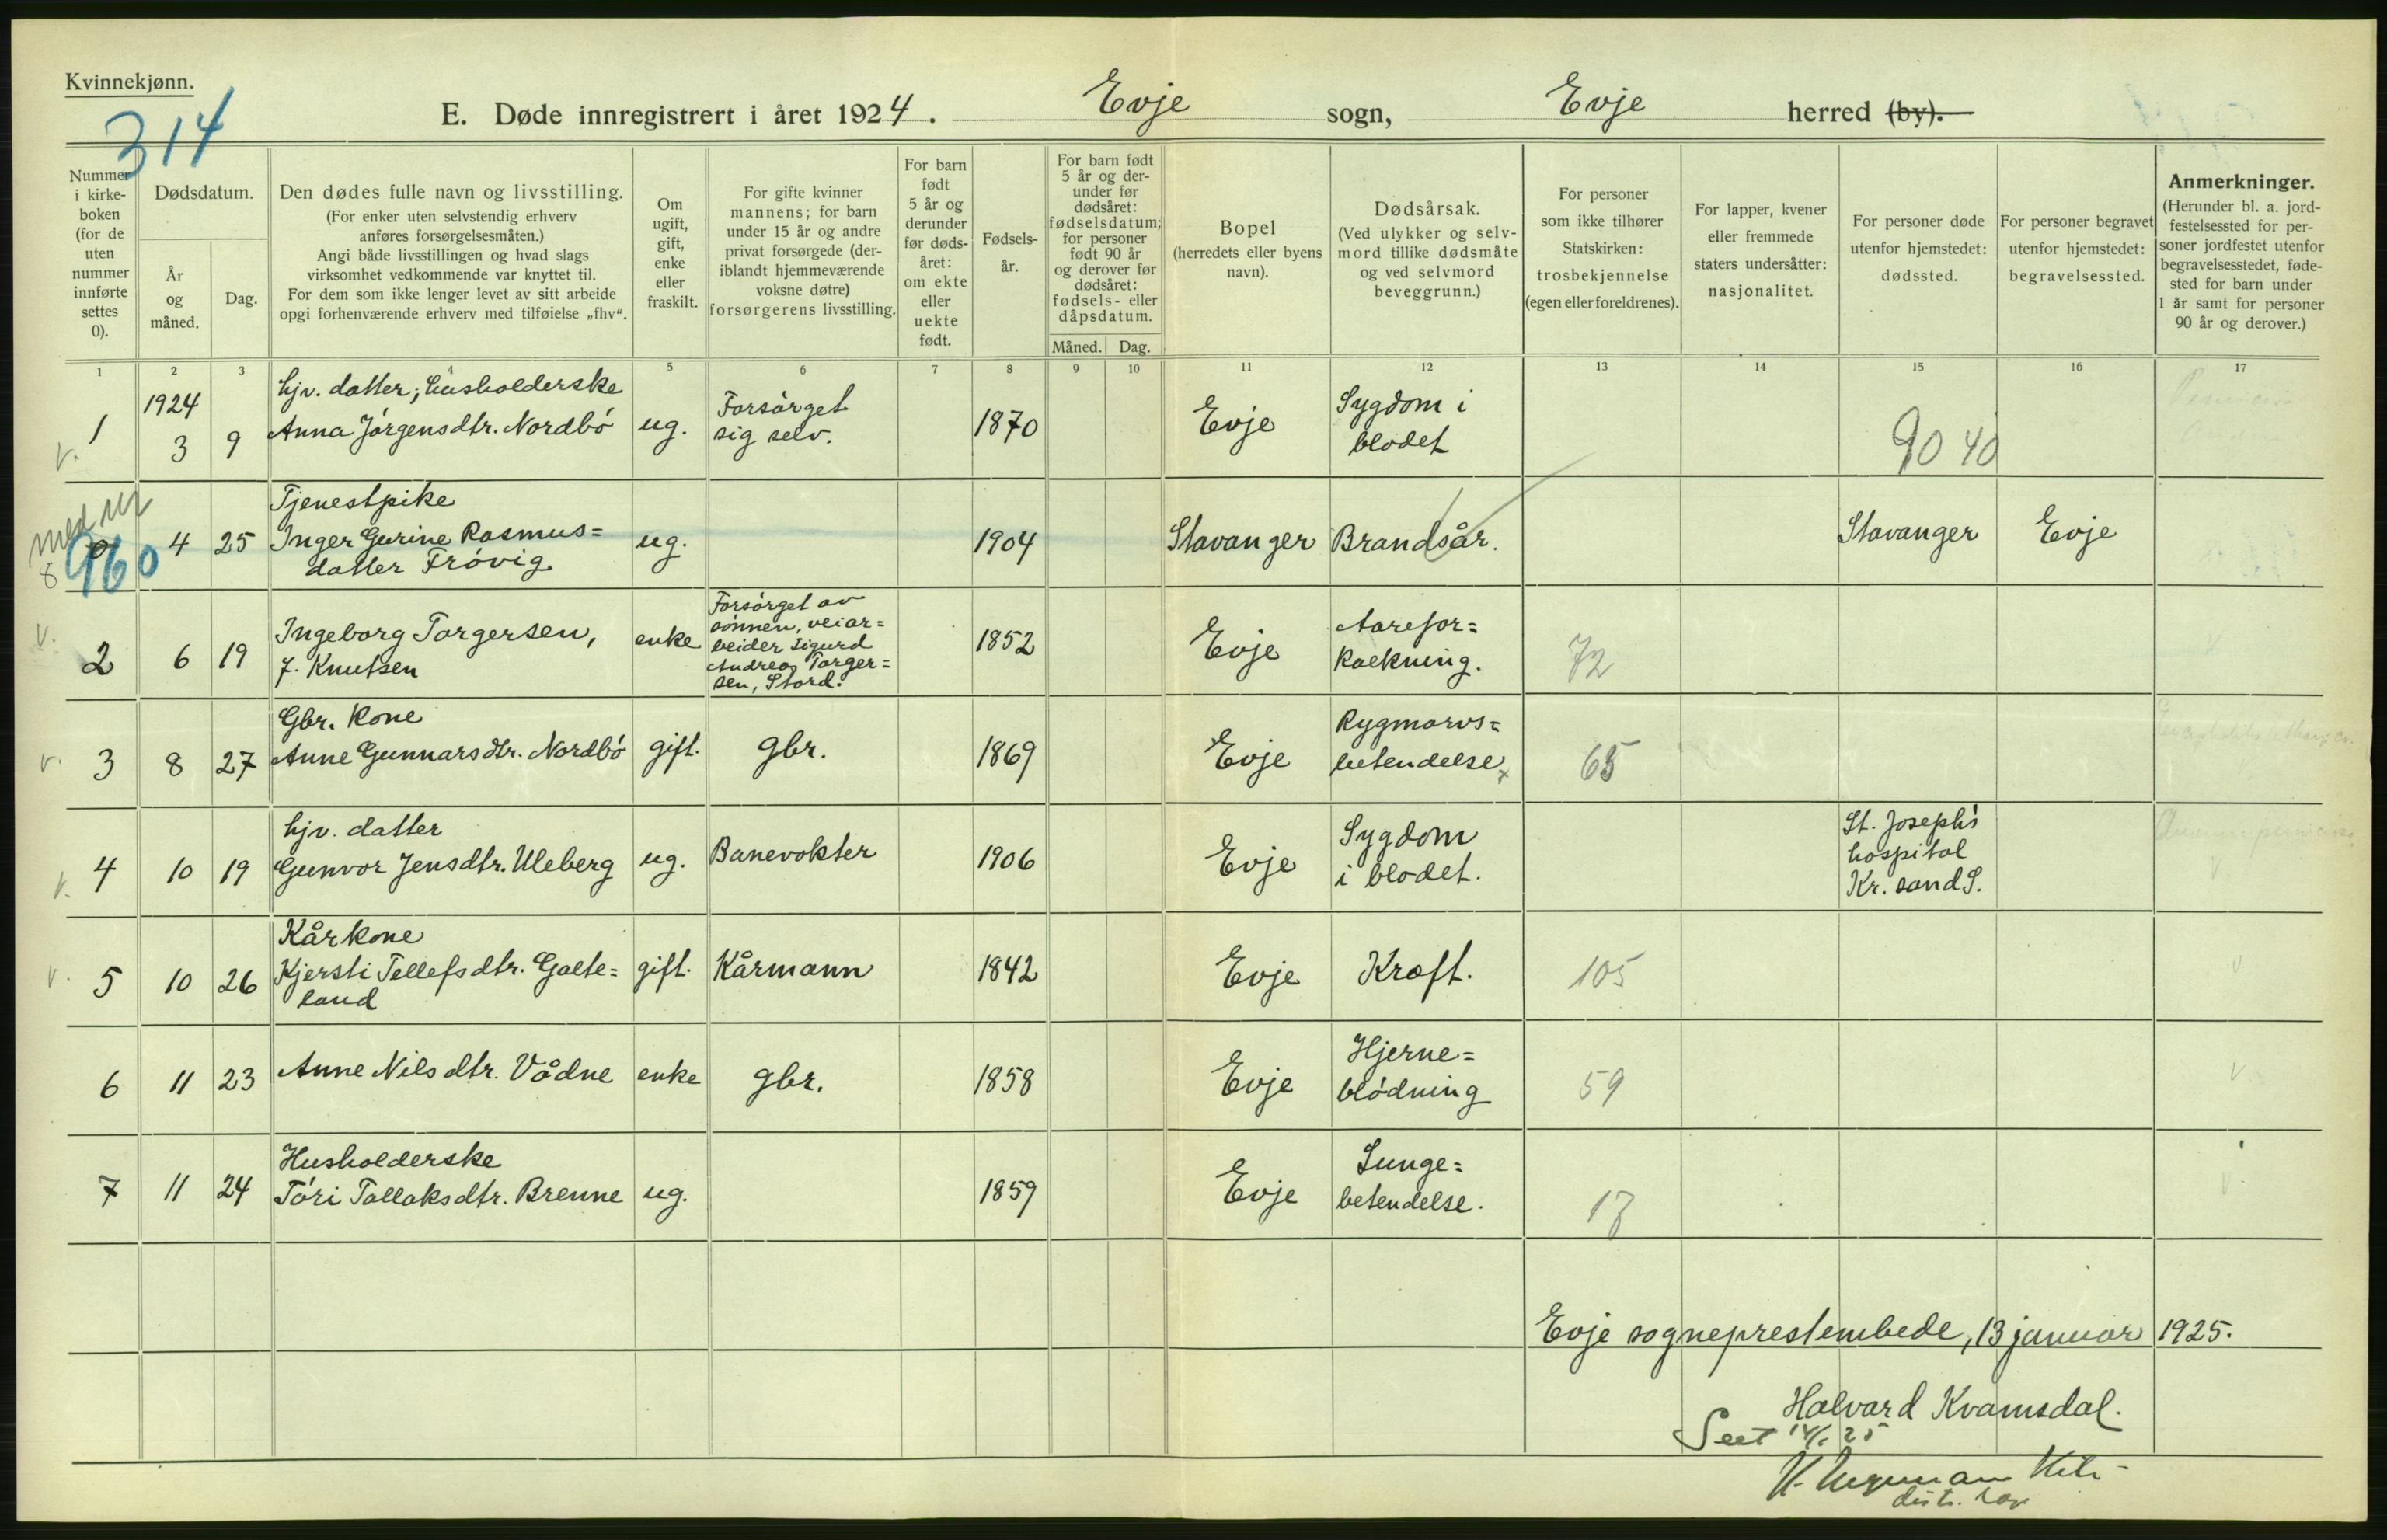 Kvinnekjønn.
314
E. Døde innregistrert i året 1924. Evje sogn, Evje herred (by).
Nummer
i kirke-
boken
(for de
uten
nummer
innførte
settes
0).
Dødsdatum.
År
og
måned.
Dag.
Den dødes fulle navn og livsstilling.
(For enker uten selvstendig erhverv
anføres forsørgelsesmåten.)
Angi både livsstillingen og hvad slags
virksomhet vedkommende var knyttet til.
For dem som ikke lenger levet av sitt arbeide
opgi forhenværende erhverv med tilføielse „fhv“.
Om
ugift,
gift,
enke
eller
fraskilt.
For gifte kvinner
mannens; for barn
under 15 år og andre
privat forsørgede (der-
iblandt hjemmeværende
voksne døtre)
forsørgerens livsstilling.
For barn
født
5 år og
derunder
før døds-
året:
om ekte
eller
uekte
født.
Fødsels-
år.
For barn født
5 år og der-
under før
dødsåret:
fødselsdatum;
for personer
født 90 år
og derover før
dødsåret:
fødsels- eller
dåpsdatum.
Måned. Dag.
Bopel
(herredets eller byens
navn).
Dødsårsak.
(Ved ulykker og selv-
mord tillike dødsmåte
og ved selvmord
beveggrunn.)
For personer
som ikke tilhører
Statskirken:
trosbekjennelse
(egen eller foreldrenes).
For lapper, kvener
eller fremmede
staters undersåtter:
nasjonalitet.
For personer døde
utenfor hjemstedet:
dødssted.
For personer begravet
utenfor hjemstedet:
begravelsessted.
Anmerkninger.
(Herunder bl. a. jord-
festelsessted for per-
soner jordfestet utenfor
begravelsesstedet, føde-
sted for barn under
1 år samt for personer
90 år og derover.)
1 2 3 4 5 6 7 8 9 10 11 12 13 14 15 16 17
v. 1
1924
3 9
hjv. datter; husholderske
Anna Jórgensdtr. Nordbó
ug.
Forsórget
sig selv.
1870
Evje
Sygdom i
blodet
90 40
960
8
4 25
Tjenestpike
Inger Gurine Rasmus=
datter Fróvig
ug.
1904
Stavanger
Brandsår.
Stavanger
Evje
v.
2 6 19
Ingeborg Torgersen,
f. Knutsen
enke
Forsórget av
sónnen, veiar=
beider Sigurd
Andreas Torger=
sen, Stord.
1852
Evje
Aarefor=
kalkning.
72
v. 3 8 27
Gbr. kone
Anne Gunnarsdtr. Nordbó
gift.
gbr.
1869
Evje
Rygmarvs=
betendelse
65
v. 4 10 19
hjv. datter
Gunvor Jensdtr. Uleberg
ug.
Banevokter
1906
Evje
Sygdom
i blodet.
St. Joseph's
hospital
Kr. sand S.
v
v. 5 10 26
Kårkone
Kjersti Tellefsdtr. Gaute=
land
gift.
Kårmann
1842
Evje
Kræft.
105
v
6 11 23
Anne Nilsdtr. Vådne
enke
gbr.
1858
Evje
Hjerne=
blódning
59
v
7 11 24
Husholderske
Tóri Tallaksdtr. Brenne
ug.
1859
Evje
Lunge=
betendelse.
17
v.
Evje sogneprestembede, 13 januar 1925.
Halvard Kvamsdal.
Seet 14/1 25